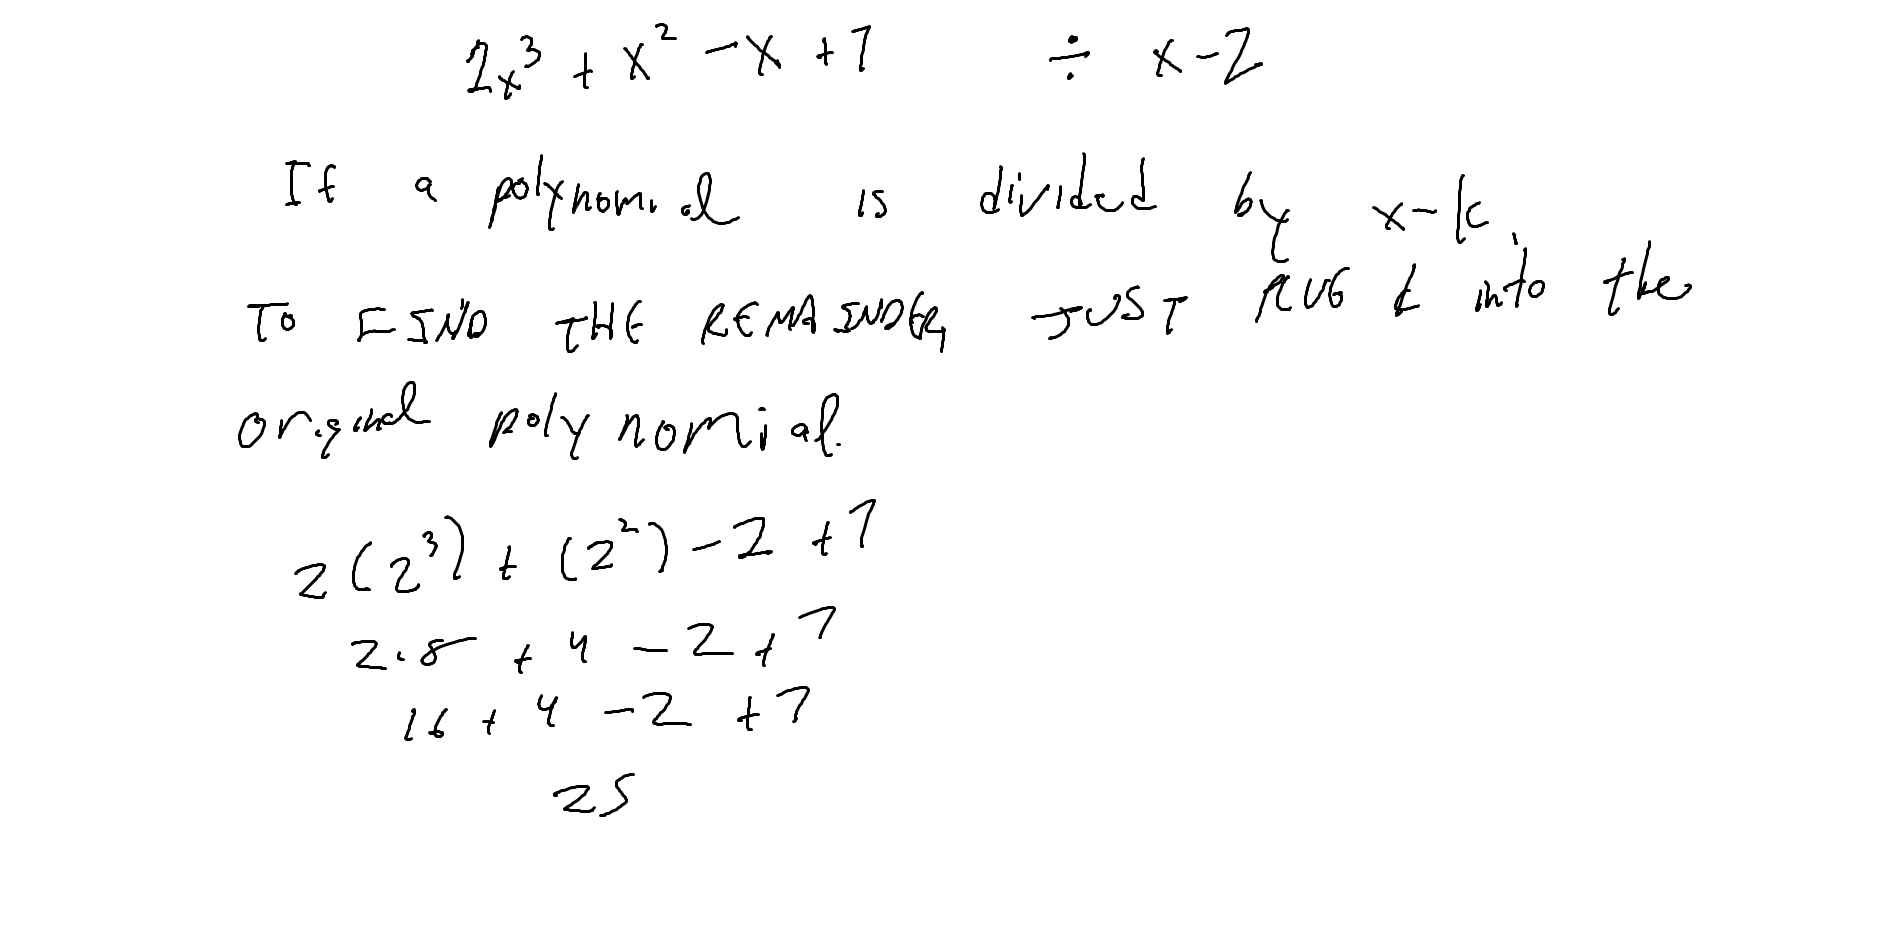 2x³ + x² - x + 7 ÷ x - 2
If a polynomial is divided by x - k,
TO FIND THE REMAINDER, JUST PLUG k into the
original polynomial.
2(2³) + (2²) - 2 + 7
2·8 + 4 - 2 + 7
16 + 4 - 2 + 7
25